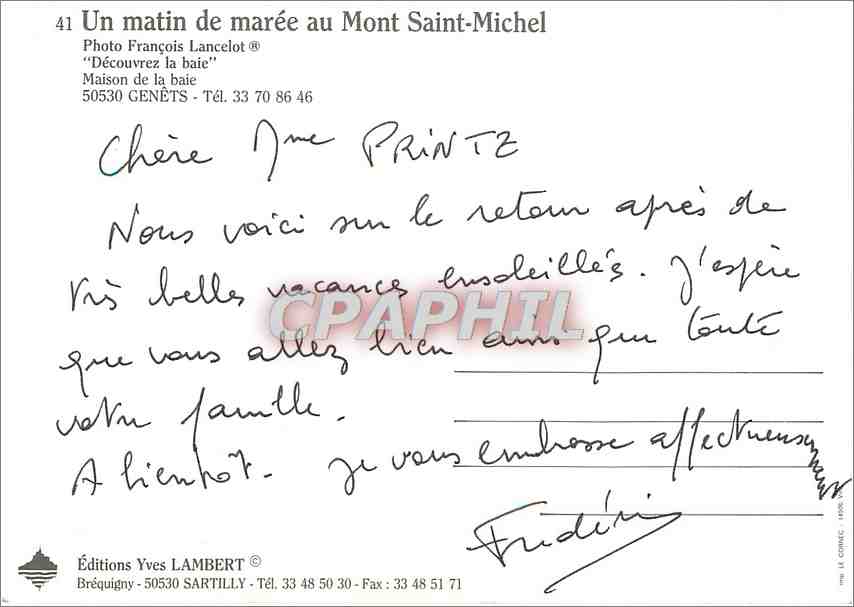 41 Un matin de marée au Mont Saint-Michel
Photo François Lancelot ®
"Découvrez la baie"
Maison de la baie
50530 GENÊTS - Tél. 33 70 86 46
Chère Mme PRINTZ
Nous voici sur le retour après de
très belles vacances ensoleillés. J'espère
que vous allez bien ainsi que toute
votre famille.
A bientôt. Je vous embrasse affectueusement
CPAPHIL
Éditions Yves LAMBERT ©
Bréquigny - 50530 SARTILLY - Tél. 33 48 50 30 - Fax : 33 48 51 71
Imp. LE CORNEC - 14500